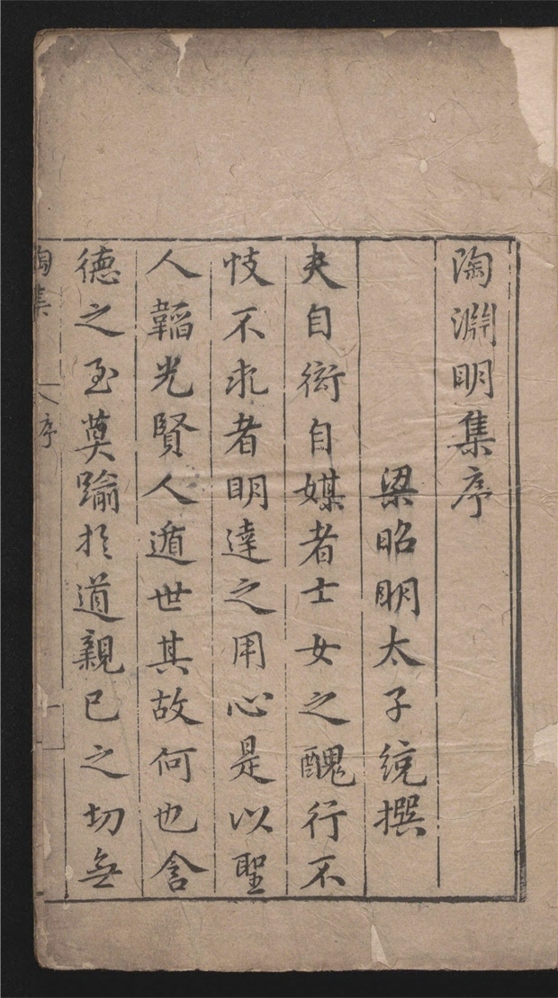 陶淵明集序
梁昭明太子統撰
夫自衒自媒者士女之醜行不
忮不求者明達之用心是以聖
人韜光賢人遁世其故何也含
德之至莫踰於道親己之切無
陶集 序 一